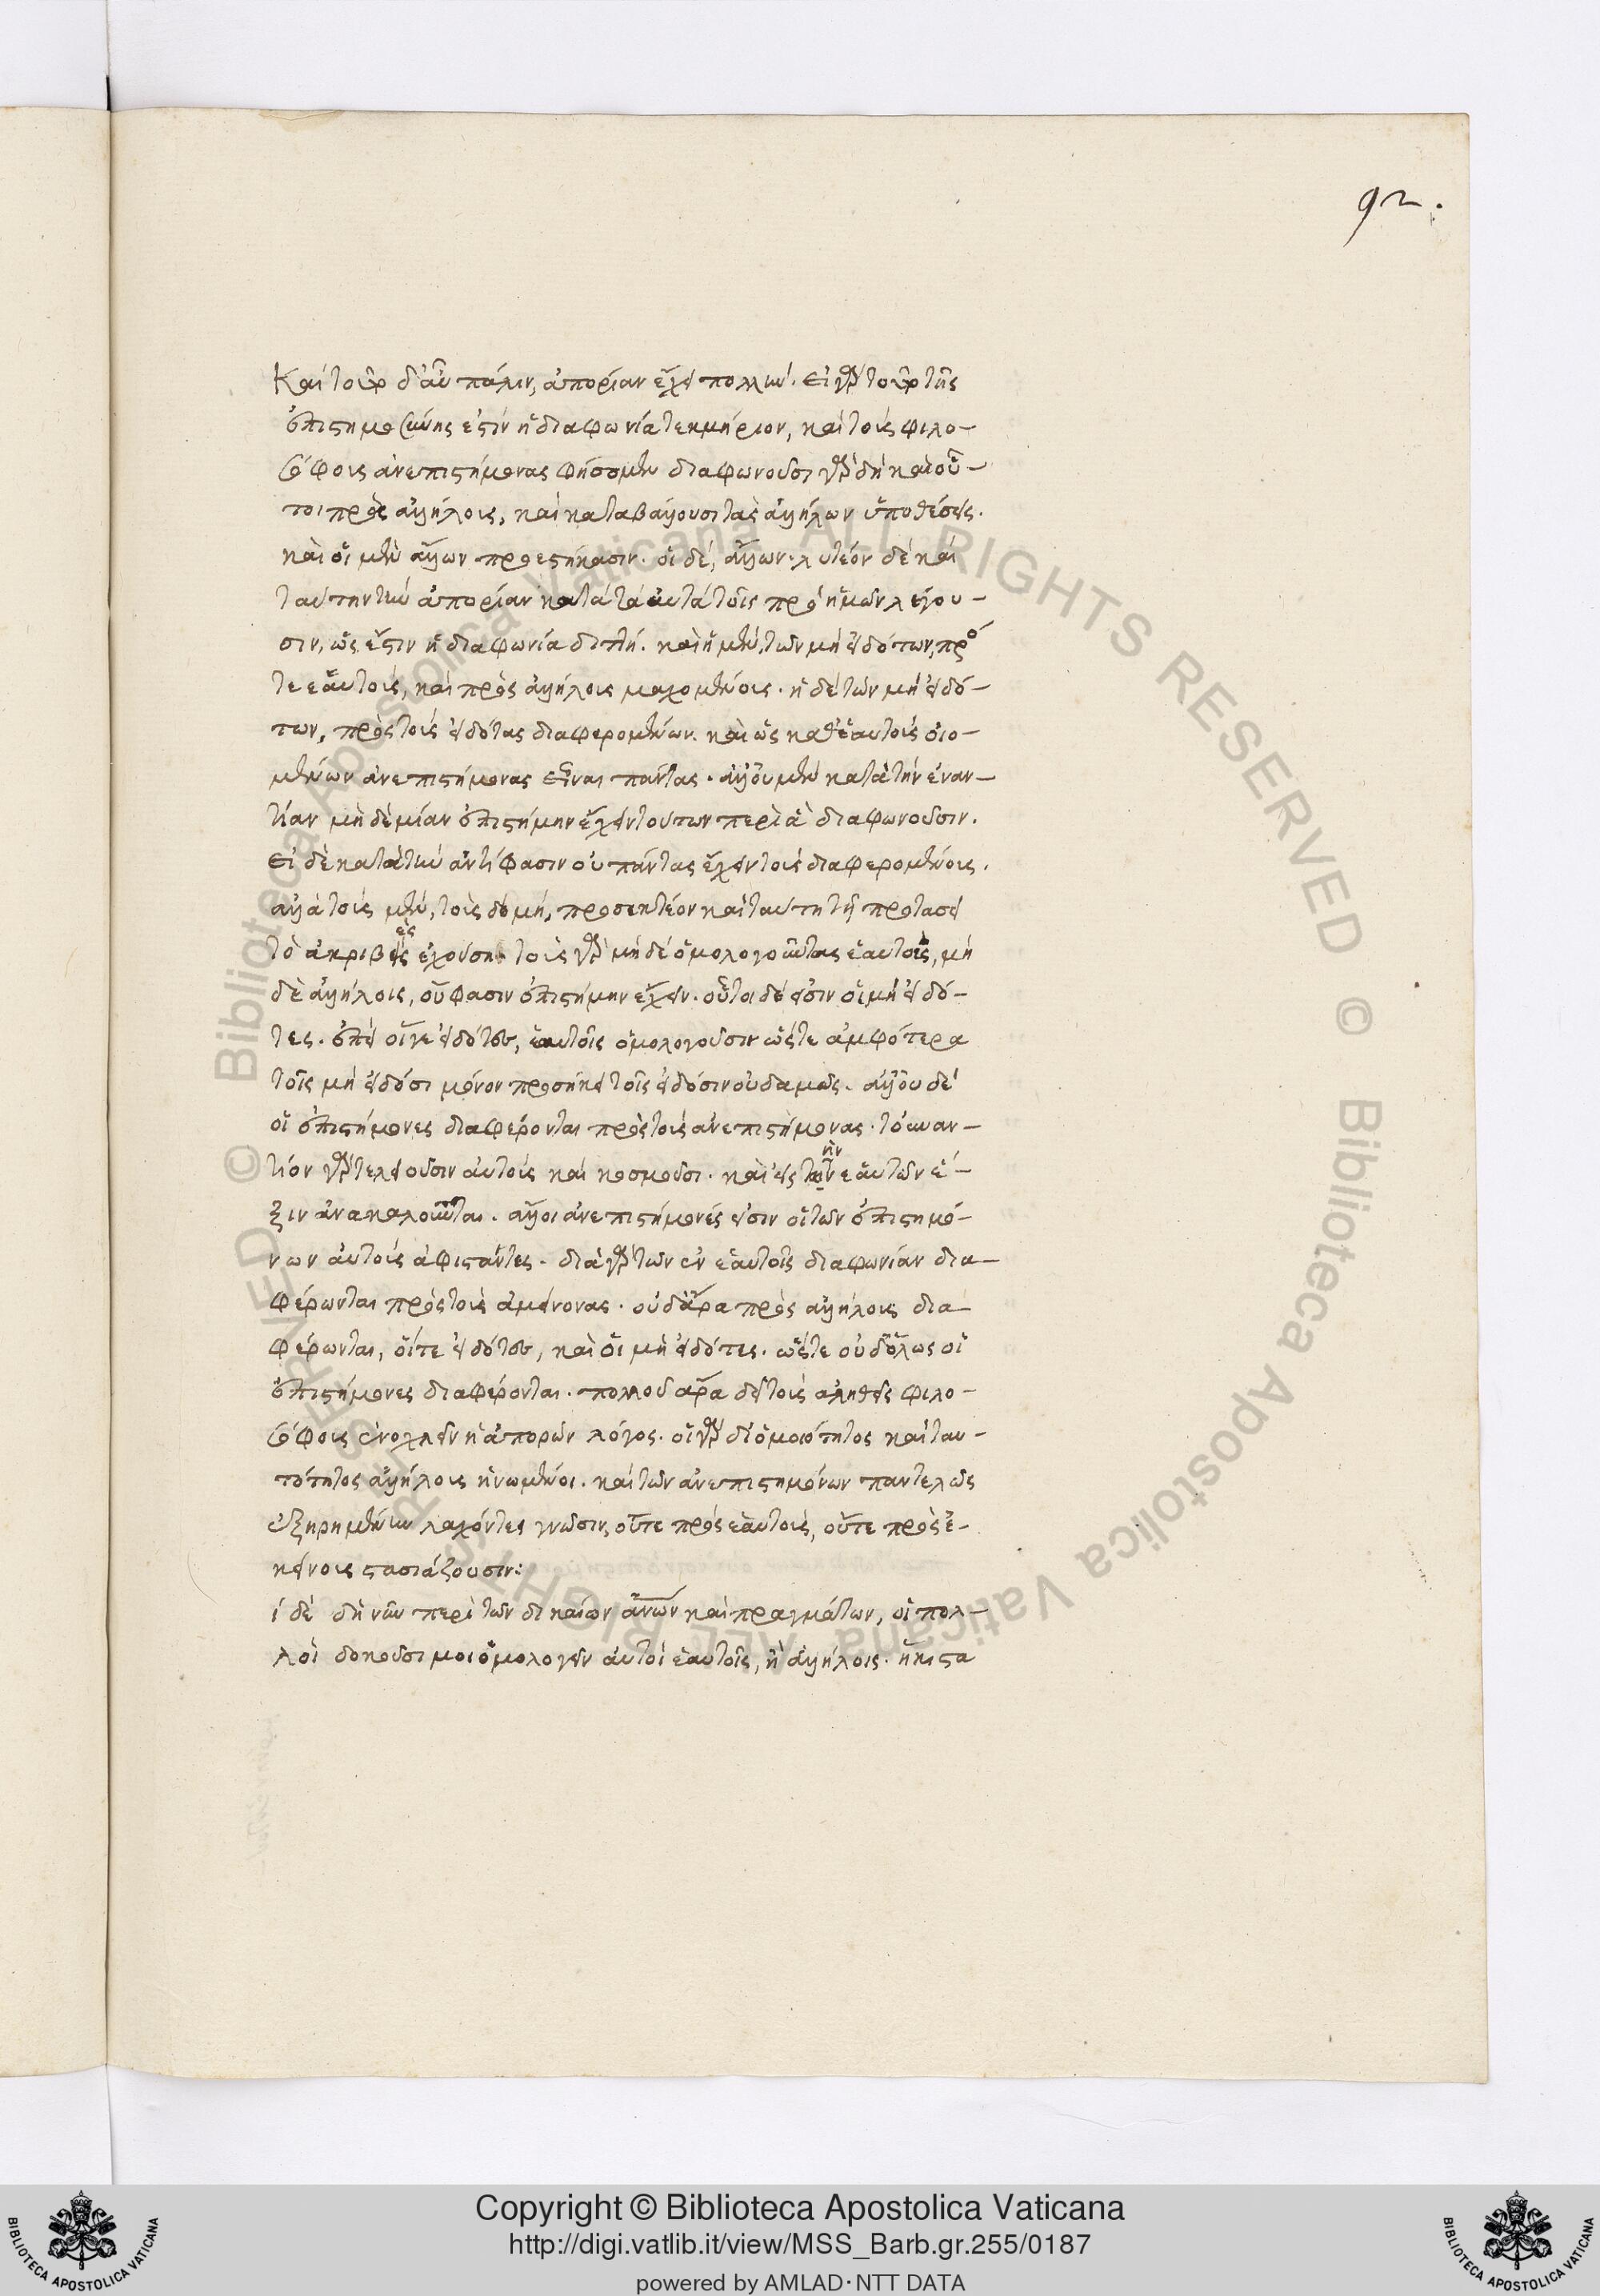 92.
Καὶ τοῦτο δ' αὖ πάλιν, ἀπορίαν ἔχει πολλήν. εἰ γὰρ τοῦτο τῆς
ἐπιστημοσύνης ἐστὶν ἡ διαφωνία τεκμήριον, καὶ τοὺς φιλο-
σόφους ἀνεπιστήμονας φήσομεν διαφωνοῦσι γὰρ δὴ καὶ οὗ-
τοι πρὸς ἀλλήλους, καὶ καταβάλλουσι τὰς ἀλλήλων ὑποθέσεις.
καὶ οἱ μὲν ἄλλων προεστήκασιν. οἱ δὲ, ἄλλων. λυτέον δὲ καὶ
ταύτην τὴν ἀπορίαν κατὰ τὰ αὐτὰ τοῖς πρὸ ἡμῶν λέγου-
σιν, ὡς ἔστιν ἡ διαφωνία διπλῆ. καὶ ἡ μὲν, τῶν μὴ εἰδότων, πρός
τε ἑαυτοὺς, καὶ πρὸς ἀλλήλους μαχομένους. ἡ δὲ τῶν μὴ εἰδό-
των, πρὸς τοὺς εἰδότας διαφερομένων. καὶ ὡς καθ' ἑαυτοὺς οἰο-
μένων ἀνεπιστήμονας εἶναι πάντας. ἀλλ' οὐ μὲν κατὰ τὴν ἐναν-
τίαν μὴ δὲ μίαν ἐπιστήμην ἔχειν τούτων περὶ ἃ διαφωνοῦσιν.
εἰ δὲ κατὰ τὴν ἀντίφασιν οὐ πάντας ἔχειν τοὺς διαφερομένους.
ἀλλὰ τοὺς μὲν, τοὺς δὲ μή, προσεκτέον καὶ ταύτῃ τῇ προτάσει
τὸ ἀκριβὲς ἐχούσῃ. τοὺς γὰρ μὴ δὲ ὁμολογοῦντας ἑαυτοῖς, μὴ
δὲ ἀλλήλοις, οὔ φασιν ἐπιστήμην ἔχειν. οὗτοι δέ εἰσιν οἱ μὴ εἰδό-
τες. ἐπεὶ οἵ γε εἰδότες, ἑαυτοῖς ὁμολογοῦσιν ὥστε ἀμφότερα
τοῖς μὴ εἰδόσι μόνον προσήκει τοῖς εἰδόσιν οὐδαμῶς. ἀλλ' οὐδὲ
οἱ ἐπιστήμονες διαφέρονται πρὸς τοὺς ἀνεπιστήμονας. τὸ ἐναν-
τίον γὰρ τελειοῦσιν αὐτοὺς καὶ κοσμοῦσι. καὶ εἰς τὴν ἑαυτῶν ἕ-
ξιν ἀνακαλοῦνται. ἀλλ' οἱ ἀνεπιστήμονές εἰσιν οἱ τῶν ἐπιστημό-
νων αὑτοὺς ἀφιστάντες. διὰ γὰρ τῶν ἐν ἑαυτοῖς διαφωνίαν δια-
φέρωνται πρὸς τοὺς ἀμείνονας. οὐδ' ἄρα πρὸς ἀλλήλους δια-
φέρωνται, οἵ τε εἰδότες, καὶ οἱ μὴ εἰδότες. ὥστε οὐδ' ὅλως οἱ
ἐπιστήμονες διαφέρονται. πολλοῦ ἄρα δεῖ τοὺς ἀληθεῖς φιλο-
σόφους ἐνοχλεῖν ἡ ἀπορῶν λόγος. οἱ γὰρ δι' ὁμοιότητος καὶ ταυ-
τότητος ἀλλήλοις ἡνωμένοι. καὶ τῶν ἀνεπιστημόνων παντελῶς
ἐξῃρημένην λαχόντες γνῶσιν, οὔτε πρὸς ἑαυτοὺς, οὔτε πρὸς ἐ-
κείνους στασιάζουσιν:
ί δὲ δὴ νῦν περὶ τῶν δικαίων ἀνων καὶ πραγμάτων, οἱ πολ-
λοὶ δοκοῦσι μοι ὁμολογεῖν αὐτοὶ ἑαυτοῖς, ἢ ἀλλήλοις. ἥκιστα
Copyright © Biblioteca Apostolica Vaticana
http://digi.vatlib.it/view/MSS_Barb.gr.255/0187
powered by AMLAD·NTT DATA
BIBLIOTECA APOSTOLICA VATICANA
BIBLIOTECA APOSTOLICA VATICANA
© Biblioteca Apostolica Vaticana ALL RIGHTS RESERVED © Biblioteca Apostolica Vaticana ALL RIGHTS RESERVED